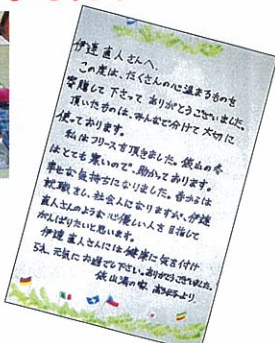 伊達直人さんへ。
この度は、たくさんの心温まるものを
寄贈して下さって ありがとうございました。
頂いたものは、みんなで分けて大切に
使っております。
私はフリースを頂きました。館山の冬
はとても寒いので、助かっております。
幸せな気持ちになりました。春からは
就職をし、社会人になりますが、伊達
直人さんのような心優しい人を目指して
がんばりたいと思います。
伊達直人さんには健康に気を付け
られ、元気にお過ごし下さい。ありがとうございました。
館山湾の家 高3女子より